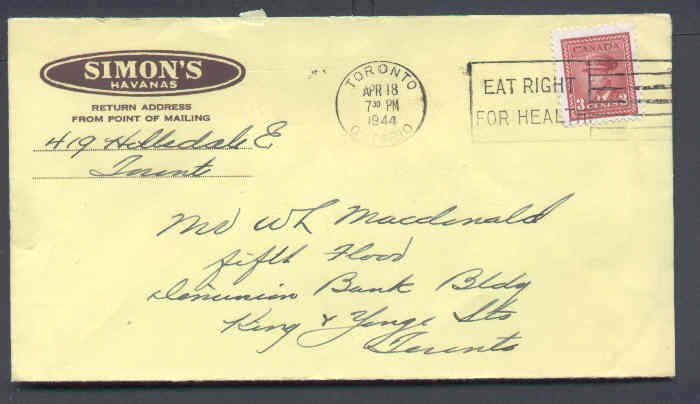 SIMON'S
HAVANAS
RETURN ADDRESS
FROM POINT OF MAILING
419 Hillsdale E
Toronto
TORONTO
APR 18
7 30 PM
1944
ONTARIO
EAT RIGHT
FOR HEALTH
CANADA
3 CENTS 3
Mr W L Macdonald
Fifth Floor
Dominion Bank Bldg
King & Yonge Sts
Toronto